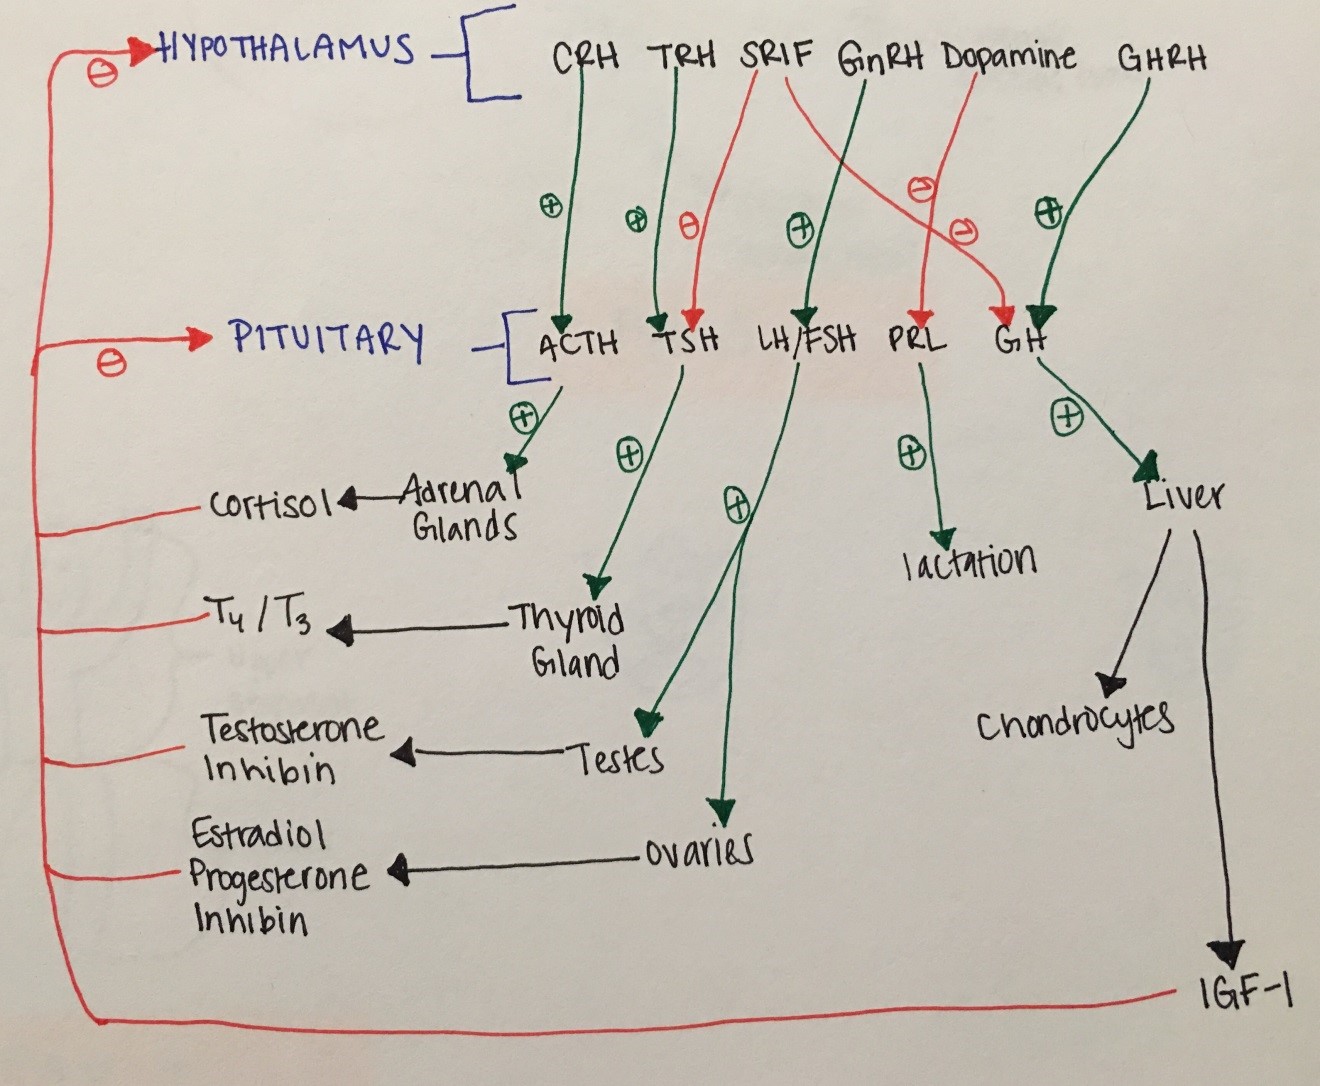 HYPOTHALAMUS
CRH TRH SRIF GnRH Dopamine GHRH
⊖
⊖
⊖
⊕
⊕
⊖
⊕
⊖
⊕
PITUITARY
ACTH TSH LH/FSH PRL GH
⊖
⊕
⊕
⊕
⊕
⊕
Cortisol
Adrenal
Glands
Liver
lactation
T4 / T3
Thyroid
Gland
Testosterone
Inhibin
Testes
Chondrocytes
Estradiol
Progesterone
Inhibin
ovaries
IGF-1